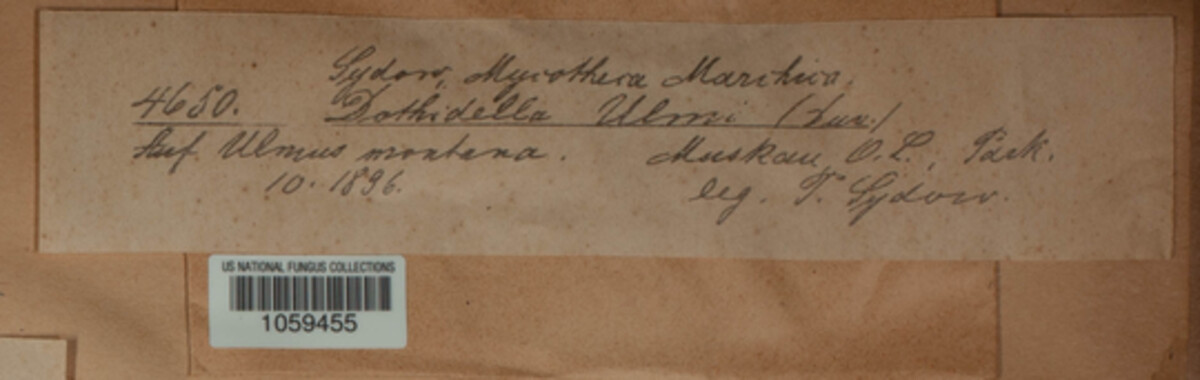 Sydow, Mycotheca Marchica.
4650. Dothidella Ulmi (Duv.)
Auf Ulmus montana. Muskau, O.L., Park.
10. 1896. leg. P. Sydow.
US NATIONAL FUNGUS COLLECTIONS
1059455